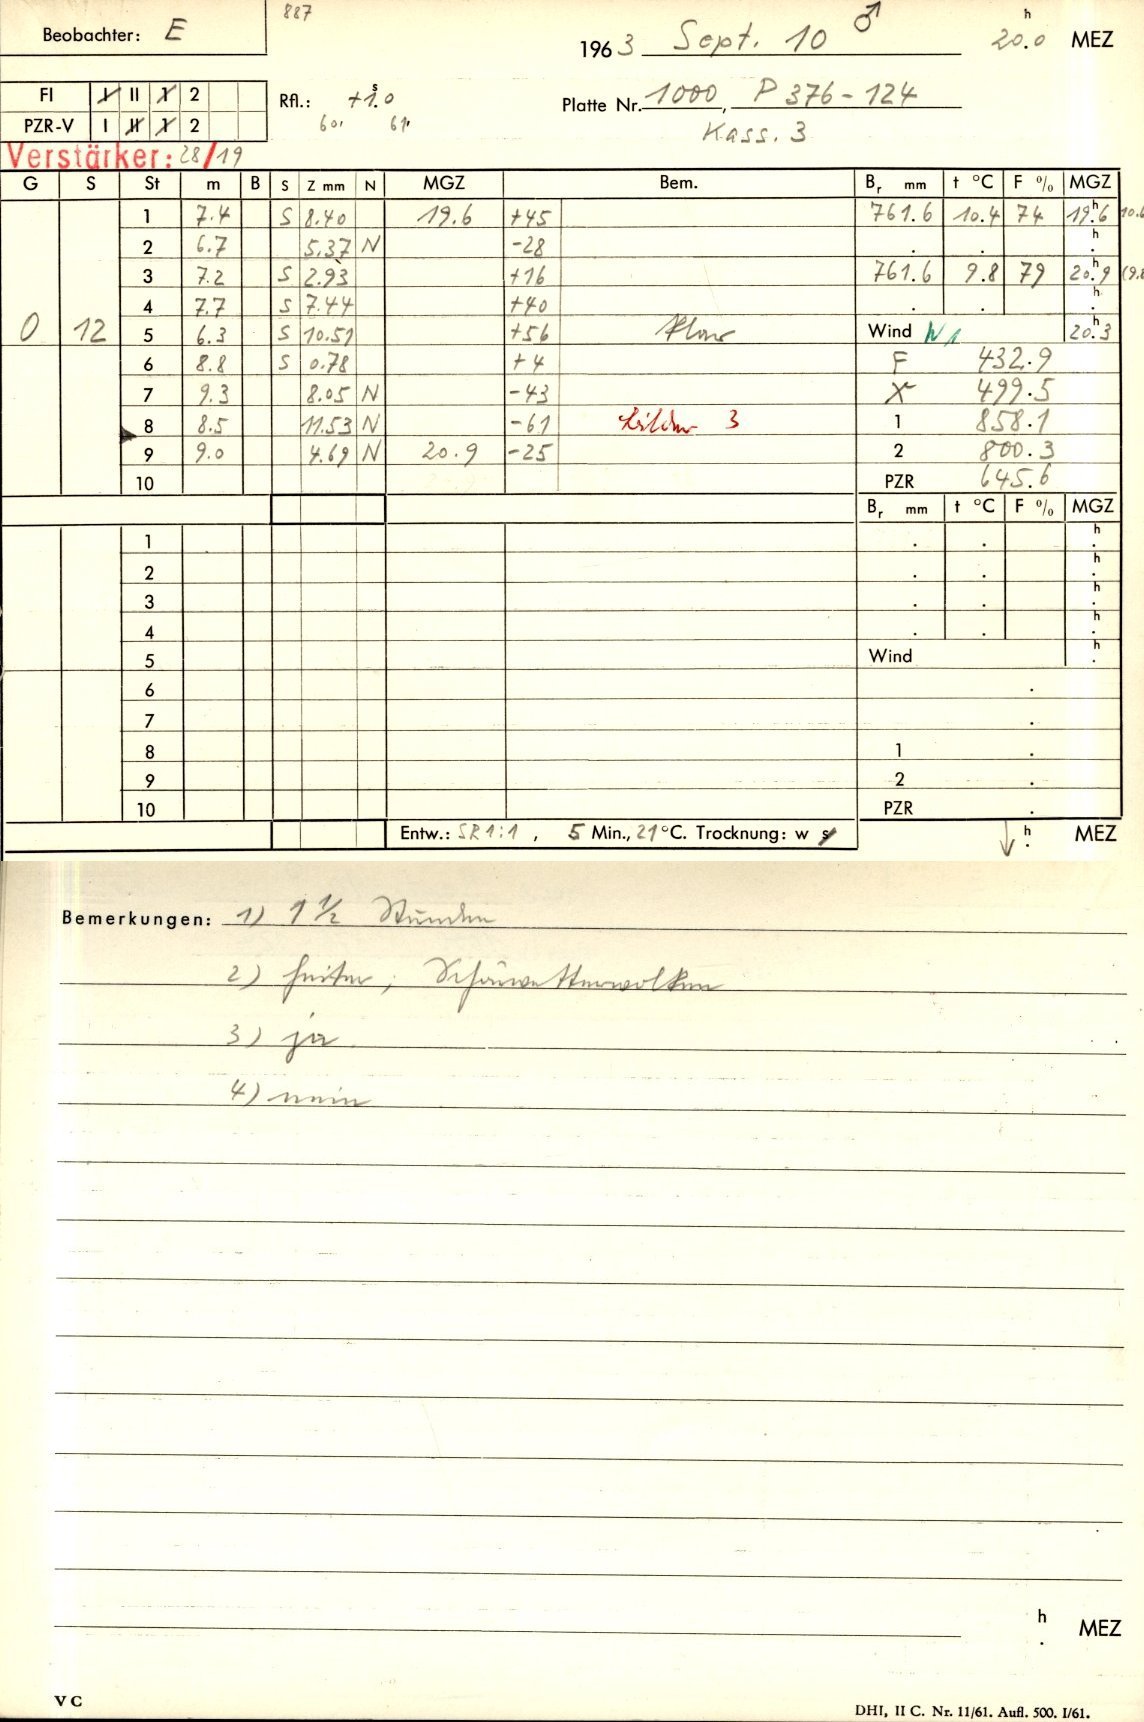 887
Beobachter: E
1963 Sept. 10 ♂ 20.0 h MEZ
FI I II 1 2
PZR-V I II 1 2
Rfl.: +1.0 s
60. 61.
Platte Nr. 1000, P 376-124
Kass. 3
Verstärker: 28/19
G S St m B S Z mm N MGZ Bem. Br mm t °C F % MGZ
1 7.4 S 8.40 19.6 +45 761.6 10.4 74 19.6 h 10.6
2 6.7 5.37 N -28 . . h .
3 7.2 S 2.93 +16 761.6 9.8 79 20.9 h (9.8
4 7.7 S 7.44 +40 . . h .
0 12 5 6.3 S 10.51 +56 klar Wind N 1 20.3 h
6 8.8 S 0.78 +4 F 432.9
7 9.3 8.05 N -43 X 499.5
8 8.5 11.53 N -61 Bilder 3 1 858.1
9 9.0 4.69 N 20.9 -25 2 800.3
10 PZR 645.6
Br mm t °C F % MGZ
1 . . h .
2 . . h .
3 . . h .
4 . . h .
5 Wind h .
6 .
7 .
8 1 .
9 2 .
10 PZR .
Entw.: SR 1:1 , 5 Min., 21 °C. Trocknung: w s
h . MEZ
Bemerkungen: 1) 1 1/2 Stunden
2) heiter; Schönwetterwolken
3) ja.
4) nein
h . MEZ
V C
DHI, II C. Nr. 11/61. Aufl. 500. I/61.